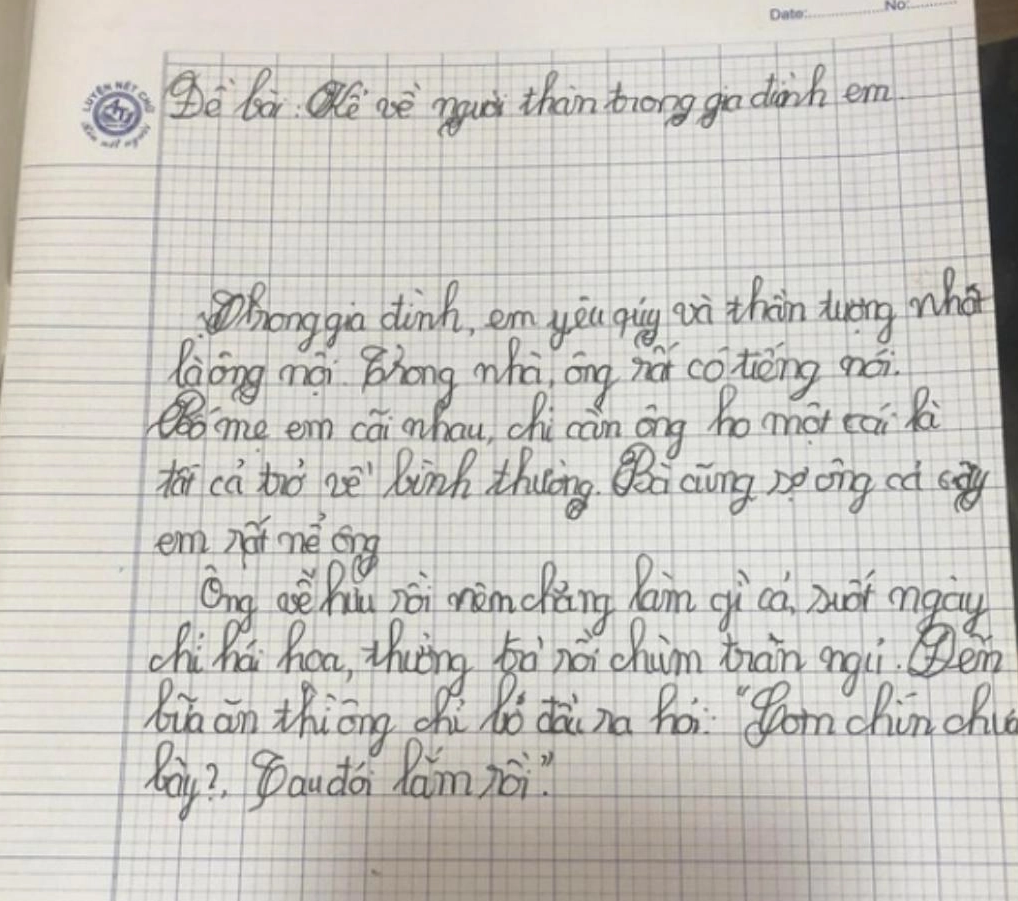 Date:.............No:..........
LUYỆN NÉT CHỮ
Rèn nết người
Đề bài: Kể về người thân trong gia đình em.
Trong gia đình, em yêu quý và thần tượng nhất
là ông nội. Trong nhà, ông rất có tiếng nói.
Bố mẹ em cãi nhau, chỉ cần ông ho một cái là
tất cả trở về bình thường. Bà cũng sợ ông
em rất nể ông
Ông về hưu rồi nên chẳng làm gì cả, suốt ngày
chỉ hái hoa, thưởng trà rồi chùm trăn ngủ. Đến
bữa ăn thì ông chỉ ló đầu ra hỏi: "Cơm chín chưa
bay?, Tau đói lắm rồi".